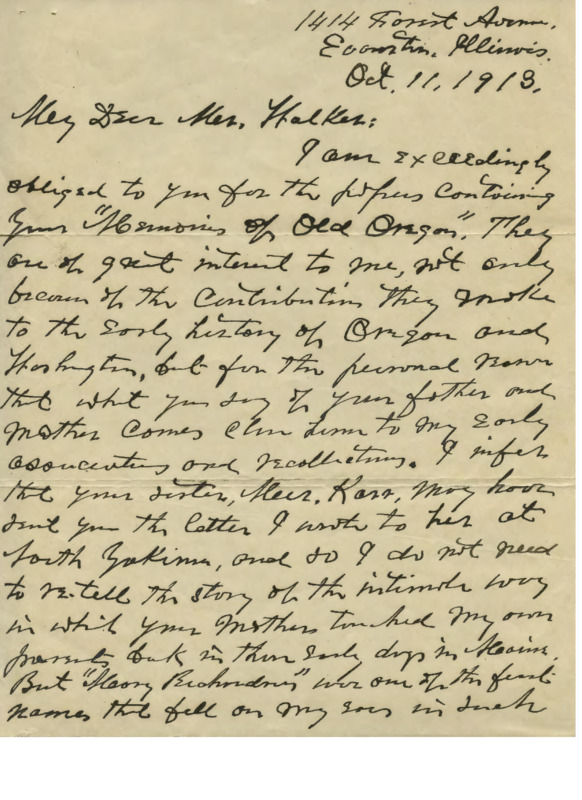 1414 Forest Avenue,
Evanston, Illinois.
Oct. 11, 1913.
My Dear Mr. Walker:
I am exceedingly
obliged to you for the papers containing
your "Memories of Old Oregon". They
are of great interest to me, not only
because of the contribution they make
to the early history of Oregon and
Washington, but for the personal reason
that what you say of your father and
mother comes close home to my early
associations and recollections. I infer
that your sister, Mrs. Karr, may have
sent you the letter I wrote to her at
North Yakima, and so I do not need
to re-tell the story of the intimate way
in which your mother touched my own
parents back in those early days in Maine.
But "Mary Richardson" was one of the first
names that fell on my ears in such